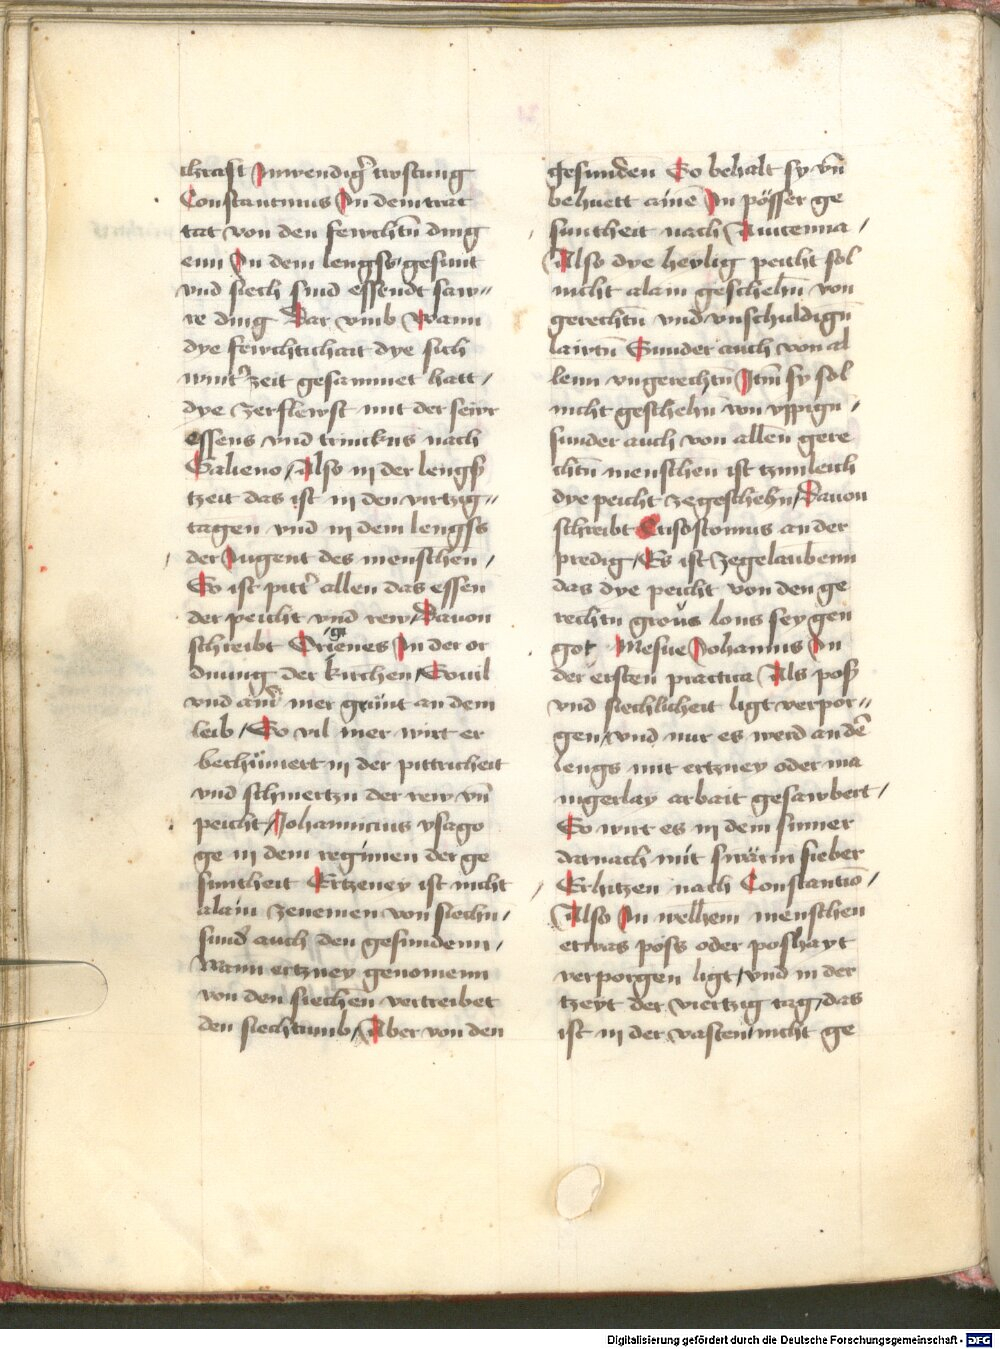 chraft Inwendigͣ trostung
Constantinus In dem trac
tat von den fewchtn̄ ding
enn In dem lengsß gesunt
vnd siech sind essendt saw〃
re ding Dar vmb Wann
dye fewchtichait dye sich
wintͣ zeit gesammet hatt /
dye zerflewst mit der feivr
essens vnd trinckns nach
Galieno / Also in der lengsß
tzeit das ist in den virtzig〃
tagen vnd in dem lengsß
der Iugent des menschen /
So ist pittͣ allen das essen
der peicht vnd rew / Dauon
schreibt Origenes In der or
dnung der kirchen / Souil
vnd ainͣ mer grünt an dem
leib / So vil mer wirt er
bechümert in der pittricheit
vnd schmertzn der rew vn̄
peicht / Johannicius ysago
ge in dem regimen der ge
suntheit Ertzeney ist nicht
alain zenemen von siechn /
sundͣ auch den gesundenn /
Wann ertzney genomenn
von den siechen vertreibet
den siechtumb / Aber von den
gesunden So behalt sy vn̄
behuett ainē In pösser ge
suntheit nach Auicenna /
Also dye heylig peicht sol
nicht alain geschehn̄ von
gerechtn̄ vnd vnschuldign̄
lairtn̄ Sunder auch von al
lenn vngerechtn̄ Itm̄ sy sol
nicht geschehn̄ von yppign̄ /
sunder auch von allen gere
chtn̄ menschen ist tzimleich
dye peicht zegeschehn / Dauon
schreibt Crisostomus an der
predig / Es ist zegelaubenn
das dye peicht von den ge
rechtn̄ groͤs lons sey gen
got Mesue Johannis In
der ersten practica Als poß
vnd siechlicheit ligt verpor〃
gen / vnd nur es werd an dē
lengs mit ertzney oder ma
nigerlay arbait gesawbert /
So wirt es in dem sumer
darnach mit swärm fieber
Erhitzen nach Constantio /
Also In welhem menschen
etwas poss oder poshayt
verporgen ligt / vnd in der
tzeyt der viertzig tag / das
ist in der vasten / nicht ge
Digitalisierung gefördert durch die Deutsche Forschungsgemeinschaft - DFG